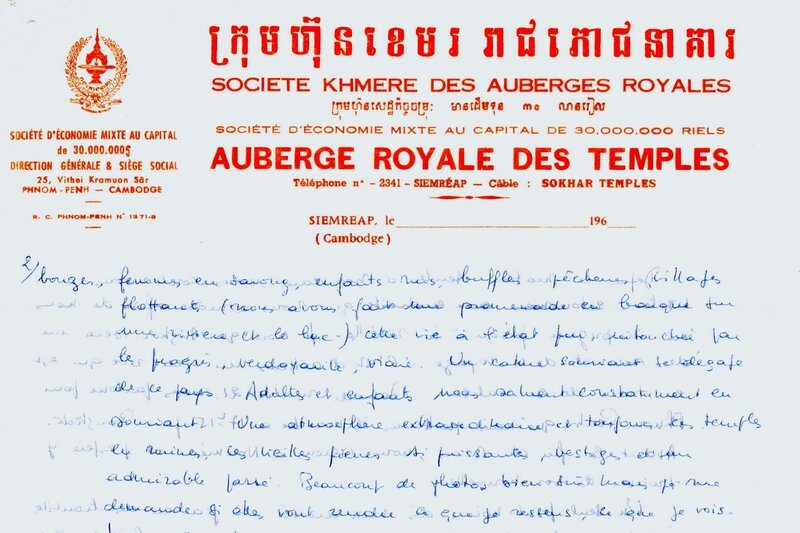 ក្រុមហ៊ុនខេមរ រាជភោជនាគារ
SOCIETE KHMERE DES AUBERGES ROYALES
ក្រុមហ៊ុនសេដ្ឋកិច្ចចម្រុះ មានដើមទុន ៣០ លានរៀល
SOCIÉTÉ D'ÉCONOMIE MIXTE AU CAPITAL DE 30,000.000 RIELS
AUBERGE ROYALE DES TEMPLES
Téléphone nº - 2341 - SIEMRÉAP — Câble : SOKHAR TEMPLES
SOCIÉTÉ D'ÉCONOMIE MIXTE AU CAPITAL
de 30.000.000
DIRECTION GÉNÉRALE & SIÈGE SOCIAL
25, Vithei Kramuon Sâr
PHNOM-PENH — CAMBODGE
R. C. PHNOM-PENH Nº 1371-B
SIEMREAP, le 196
(Cambodge)
2/ bonzes, femmes en sarong, enfants nus, buffles, pêcheurs, villages
flottants (nous avons fait une promenade en barque sur
une rivière et le lac-) cette vie à l'état pur, intouchée par
le progrès, verdoyante, vraie. Un calme souriant se dégage
de ce pays. Adultes et enfants nous saluent constamment en
souriant. Une atmosphère extraordinaire et toujours les temples
les ruines, ces vieilles pierres si puissantes, vestiges d'un
admirable passé. Beaucoup de photos, bien sûr mais je me
demande si elles vont rendre ce que je ressens, ce que je vois-